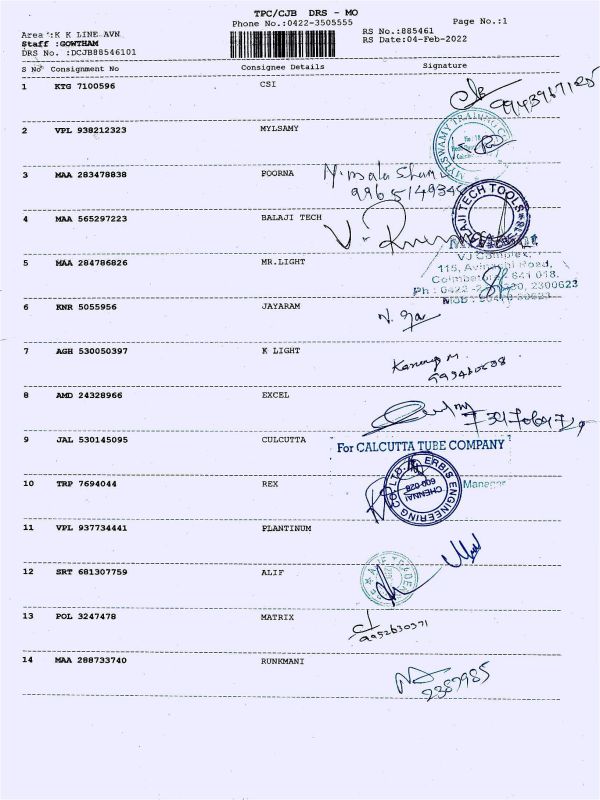 TPC/CJB DRS - MO
Phone No.:0422-3505555
Page No.:1
Area :K K LINE AVN
Staff :GOWTHAM
DRS No. :DCJB88546101
RS No.:885461
RS Date:04-Feb-2022
S No Consignment No Consignee Details Signature
1 KTG 7100596 CSI
2 VPL 938212323 MYLSAMY
3 MAA 283478838 POORNA
4 MAA 565297223 BALAJI TECH
BALAJI TECH TOOLS
5 MAA 284786826 MR.LIGHT
VJ Complex,
115, Avinashi Road,
Coimbatore 641 018.
6 KNR 5055956 JAYARAM
7 AGH 530050397 K LIGHT
8 AMD 24328966 EXCEL
9 JAL 530145095 CULCUTTA
For CALCUTTA TUBE COMPANY
10 TRP 7694044 REX
ERBIS ENGINEERING CO. LTD.
CHENNAI
600 028
Manager
11 VPL 937734441 PLANTINUM
12 SRT 681307759 ALIF
13 POL 3247478 MATRIX
9952630371
14 MAA 288733740 RUNKMANI
2387985